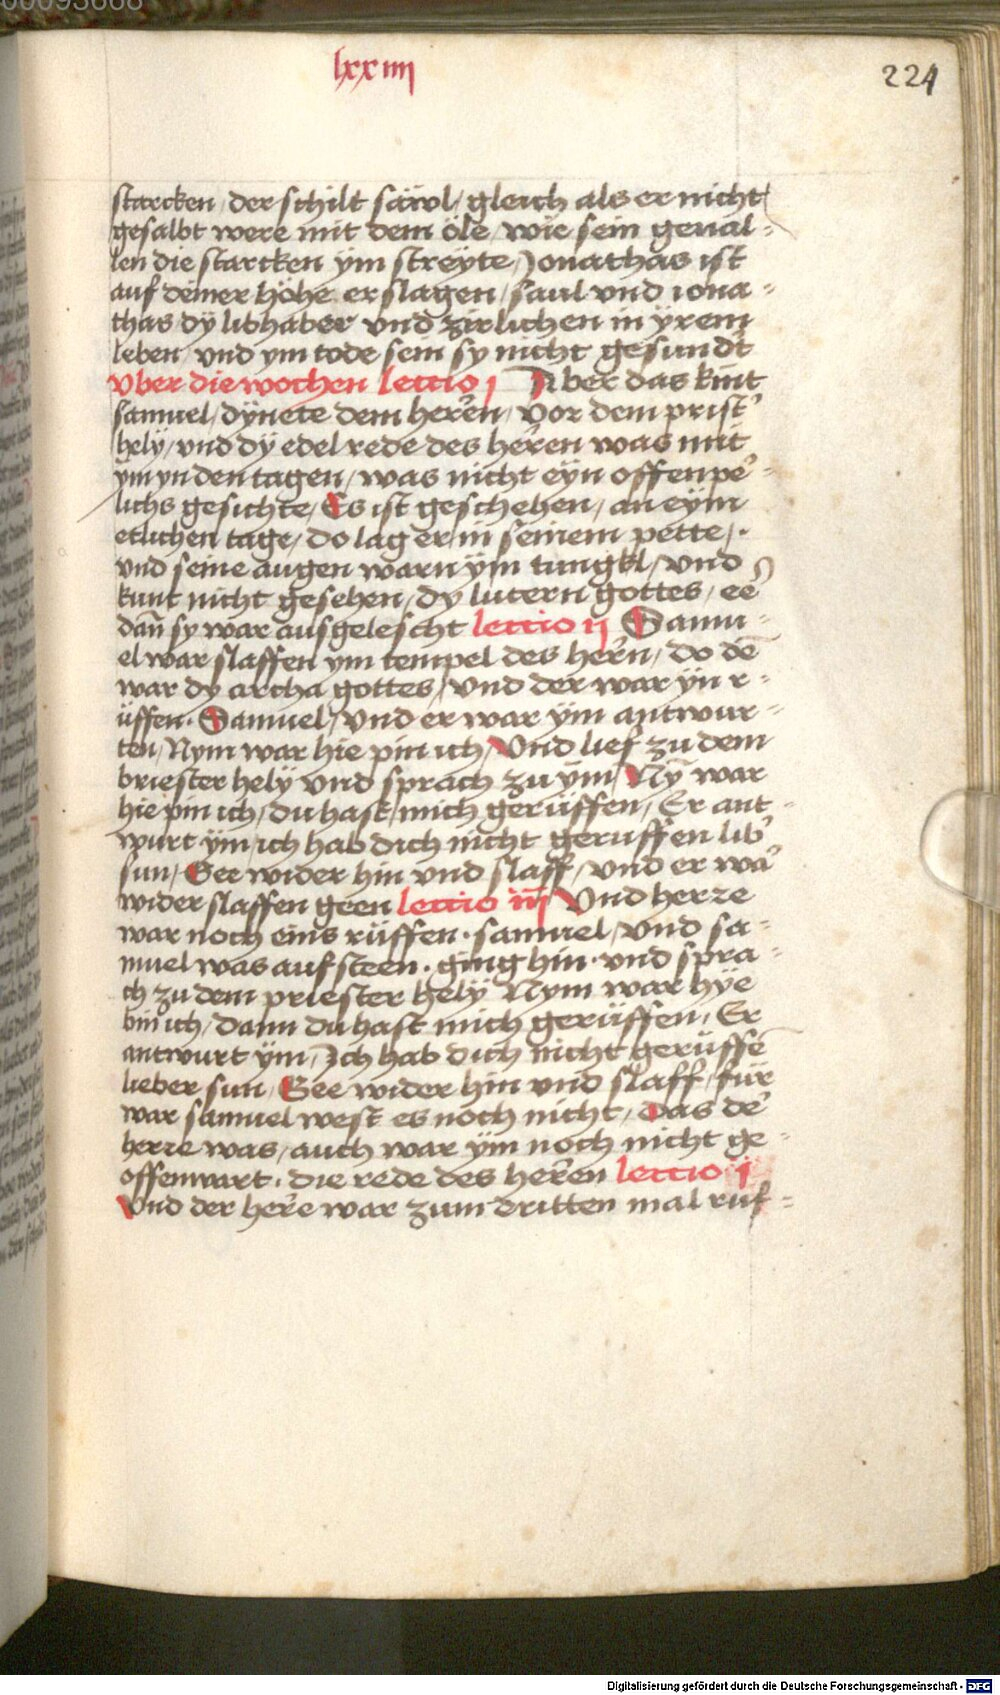 00093668
lxxiiij
224
starcken / der schilt säwl / gleich als er nicht
gesalbt were mit dem öle / wie sein geual-
len die starcken ym streyte / Jonathas ist
auf deiner höhe erslagen / saul vnd iona-
thas dÿ libhaber vnd zirlichen in ÿrem
leben / vnd ym tode sein sy nicht gesundt
Vber die wochen lectio j Aber das kint
samuel / dÿnete dem herren / vor dem prist'
hely / vnd dÿ edel rede des herren was mit
ÿm yn den tagen / was nicht eÿn offenpe'-
lichs gesichte / Es ist geschehen / an eÿm
etlichen tage / do lag er in seinem pette /
vnd seine augen warn ÿm tungkl / vnd
kunt nicht gesehen / dy lutern gottes / ee
dan̄ sy war ausgelescht lectio ij Samu-
el war slaffen ym tempel des hern / do dē
war dy archa gottes / vnd der war ÿn r-
üffen · Samuel / vnd er war ÿm antwur-
ten / Nym war hie pin ich / Vnd lief zu dem
briester helÿ vnd sprach zu ÿm / Nȳ war
hie pin ich / du hast mich gerüffen / Er ant-
wurt ÿm / ich hab dich nicht geruffen lib'
sun / Gee wider hin vnd slaff / vnd er wa'
wider slaffen geen lectio iij Vnd herre
war noch eins rüffen · samuel / vnd sa-
muel was aufsteen · ging hin · vnd spra-
ch zu dem priester helÿ Nym war hÿe
bin ich / dann du hast mich gerüffen / Er
antwurt ÿm / Ich hab dich nicht gerüffē
lieber sun / Gee wider hin vnd slaff / für
war samuel west es noch nicht / das de'
herre was / auch war ÿm noch nicht ge-
offenwart · die rede des herren lectio j
Vnd der herre war zum dritten mal rüf-
Digitalisierung gefördert durch die Deutsche Forschungsgemeinschaft - DFG